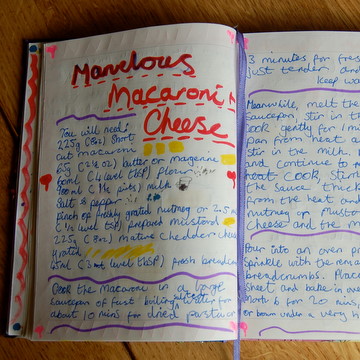 Marvelous
Macaroni n
Cheese
You will need:
225g (8oz) short
cut macaroni
65g (2½ oz) butter or margerine
60ml (4 level tbsp) flour
900ml (1½ pints) milk
Salt & pepper
pinch of freshly grated nutmeg or 2.5 ml
(½ level tsp) prepared mustard
225g (8oz) mature Cheddar cheese
grated
45ml (3 level tbsp) fresh breadcrumbs
Cook the macaroni in a large
saucepan of fast boiling salted water for
about 10 mins for dried pasta or
3 minutes for fres
just tender and
keep wa
Meanwhile, melt the
saucepan, stir in the
cook gently for 1 m
pan from heat a
stir in the milk.
and continue to
heat cook, stirri
the sauce thick
from the heat and
nutmeg or mustar
cheese and the m
Pour into an oven pr
Sprinkle with the remai
breadcrumbs. Place
sheet and bake in ove
mark 6 for 20 mins
or brown under a very h